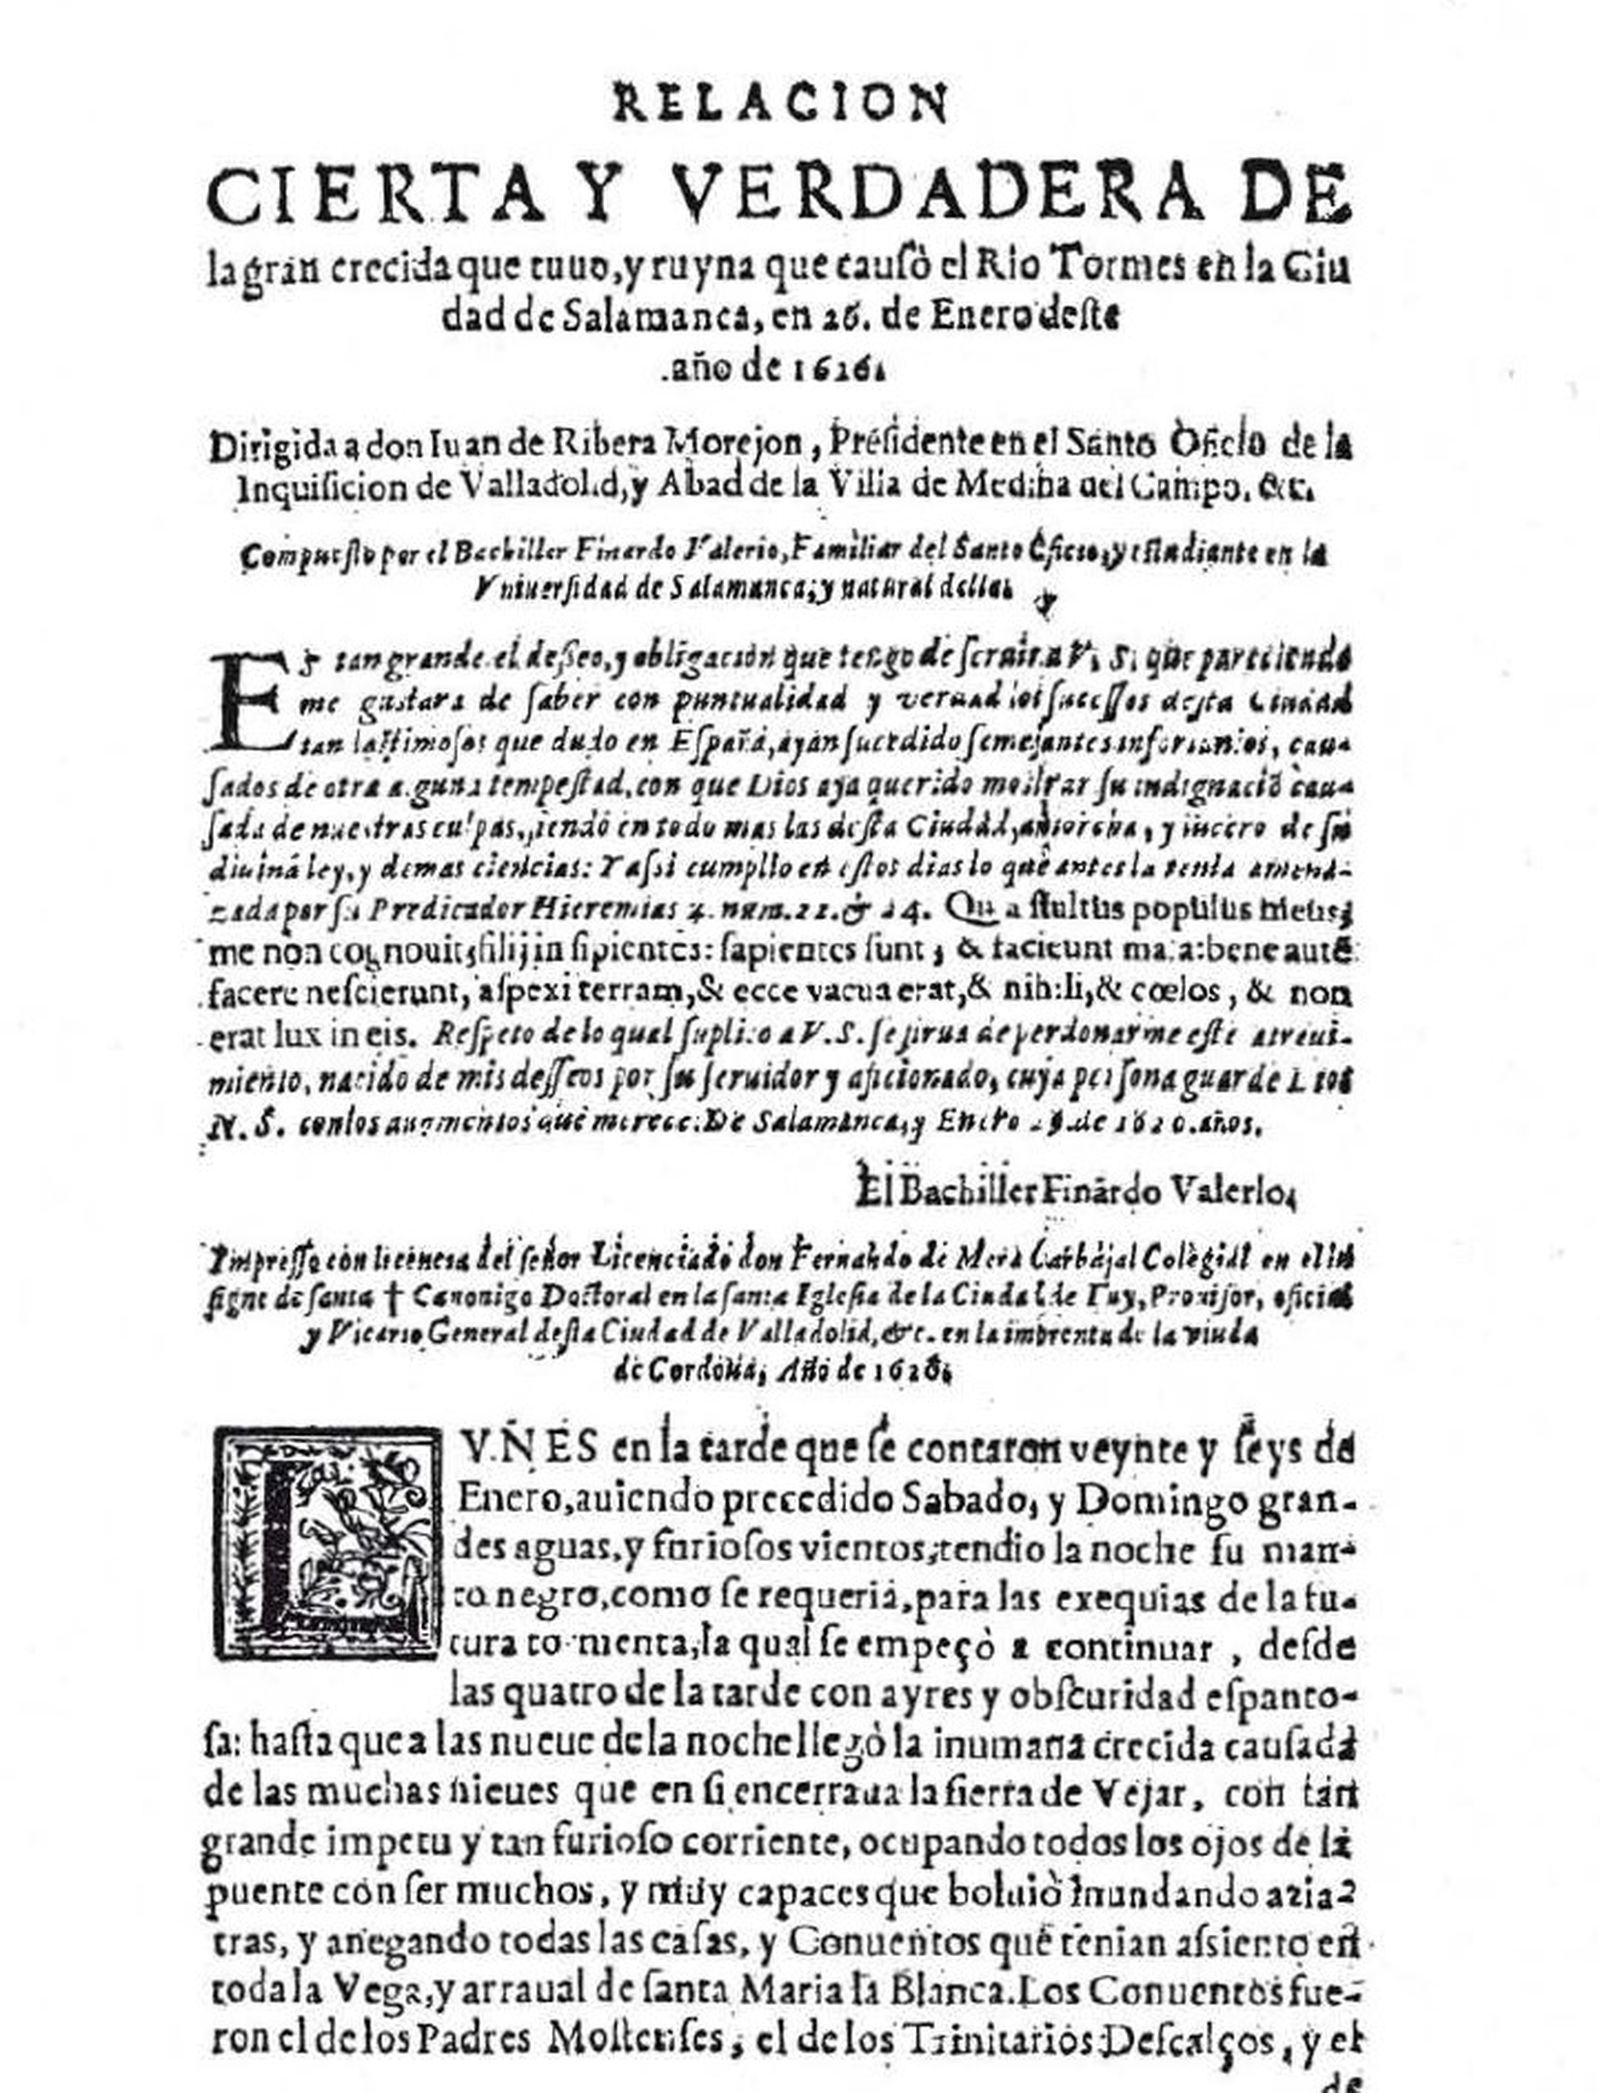 RELACION
CIERTA Y VERDADERA DE
la gran crecida que tuuo, y ruyna que causò el Rio Tormes en la Ciu
dad de Salamanca, en 26. de Enero deste
año de 1626.
Dirigida a don Iuan de Ribera Morejon, Presidente en el Santo Oficio de la
Inquisicion de Valladolid, y Abad de la Villa de Medina del Campo. &c.
Compuesto por el Bachiller Finardo Valerio, Familiar del Santo Oficio, y estudiante en la
Vniuersidad de Salamanca, y natural della.
ES tan grande el desseo, y obligacion que tengo de seruir a V. S. que pareciendo
me gustara de saber con puntualidad y verdad los sucessos desta Ciudad
tan lastimosos que dudo en España, ayan sucedido semejantes infortunios, cau-
sados de otra alguna tempestad, con que Dios aya querido mostrar su indignació cau-
sada de nuestras culpas, siendo en todo mas las desta Ciudad, antorcha, y lucero de su
diuina ley, y demas ciencias: Y assi cumplio en estos dias lo que antes la tenia amena-
zada por su Predicador Hieremias 4. num. 22. & 24. Qu a stultus populus meus,
me non cognouit, filij insipientes: sapientes sunt, & faciunt mala: bene autē
facere nescierunt, aspexi terram, & ecce vacua erat, & nihili, & cœlos, & non
erat lux in eis. Respeto de lo qual suplico a V. S. se sirua de perdonarme este atreui-
miento, nacido de mis desseos por su seruidor y aficionado, cuya persona guarde Dios
N. S. con los augmentos que merece. De Salamanca, y Enero de 1626. años.
El Bachiller Finardo Valerio,
Impresso con licencia del señor Licenciado don Fernando de Mera Carbajal Colegial en el in
signe de santa † Canonigo Doctoral en la santa Iglesia de la Ciudad de Tuy, Prouisor, oficial
y Vicario General desta Ciudad de Valladolid, &c. en la imprenta de la viuda
de Cordoua, Año de 1626.
LVNES en la tarde que se contaron veynte y seys de
Enero, auiendo precedido Sabado, y Domingo gran-
des aguas, y furiosos vientos, tendio la noche su man-
to negro, como se requeria, para las exequias de la fu-
tura tormenta, la qual se empeçò a continuar, desde
las quatro de la tarde con ayres y obscuridad espanto-
sa: hasta que a las nueue de la noche llegò la inumana crecida causada
de las muchas nieues que en si encerraua la sierra de Vejar, con tan
grande impetu y tan furioso corriente, ocupando todos los ojos de la
puente con ser muchos, y muy capaces que boluiò inundando azia
tras, y anegando todas las casas, y Conuentos que tenian assiento en
toda la Vega, y arraual de santa Maria la Blanca. Los Conuentos fue-
ron el de los Padres Mostenses, el de los Trinitarios Descalços, y el
de